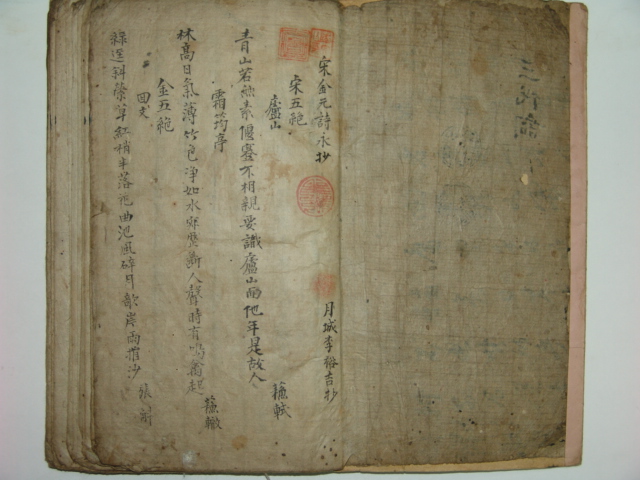 三代
宋金元詩永抄
月城李裕吉抄
宋五絶
廬山
青山若無素偃蹇不相親要識廬山面他年是故人 蘇軾
霜筠亭
林高日氣薄竹色淨如水寂歷斷人聲時有鳴禽起 蘇轍
金五絶
回文
綠選斜縈草紅稍半落花曲池風碎月歌岸雨摧沙 張